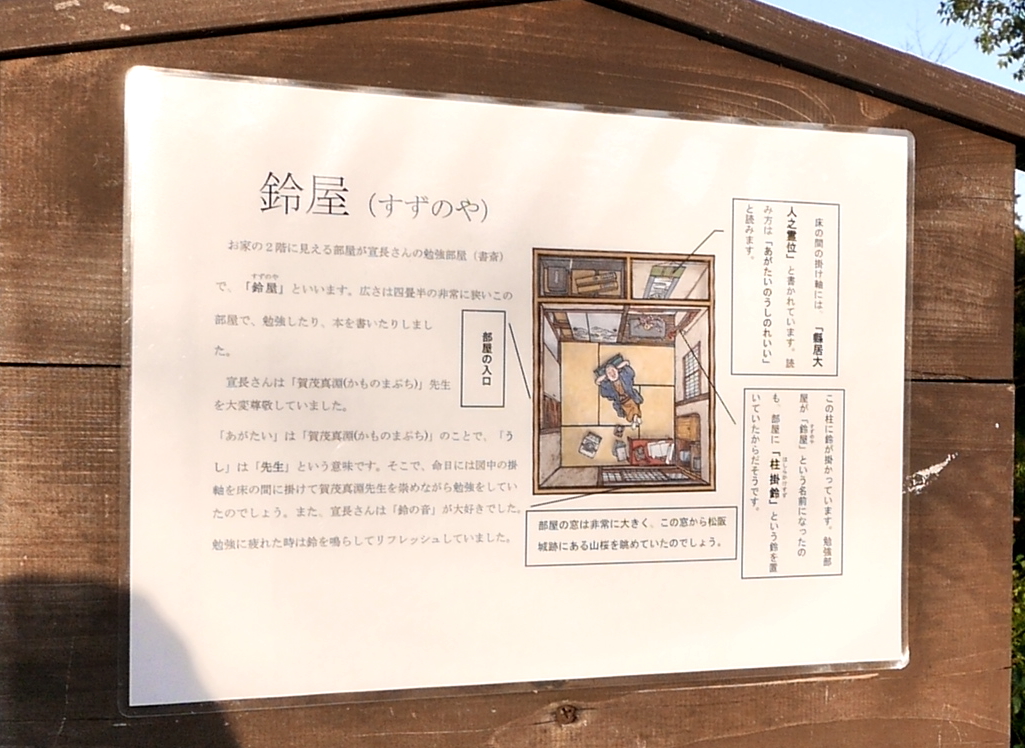 鈴屋（すずのや）
お家の２階に見える部屋が宣長さんの勉強部屋（書斎）
すずのや
で、「鈴屋」といいます。広さは四畳半の非常に狭いこの
部屋で、勉強したり、本を書いたりしまし
た。
宣長さんは「賀茂真淵(かものまぶち)」先生
を大変尊敬していました。
「あがたい」は「賀茂真淵(かものまぶち)」のことで、「う
し」は「先生」という意味です。そこで、命日には図中の掛
軸を床の間に掛けて賀茂真淵先生を崇めながら勉強をしてい
たのでしょう。また、宣長さんは「鈴の音」が大好きでした。
勉強に疲れた時は鈴を鳴らしてリフレッシュしていました。
部屋の入口
床の間の掛け軸には、「縣居大
人之霊位」と書かれています。読
み方は「あがたいのうしのれいい」
と読みます。
この柱に鈴が掛かっています。勉強部
すずのや
屋が「鈴屋」という名前になったの
はしらかけすず
も、部屋に「柱掛鈴」という鈴を置
いていたからだそうです。
部屋の窓は非常に大きく、この窓から松阪
城跡にある山桜を眺めていたのでしょう。